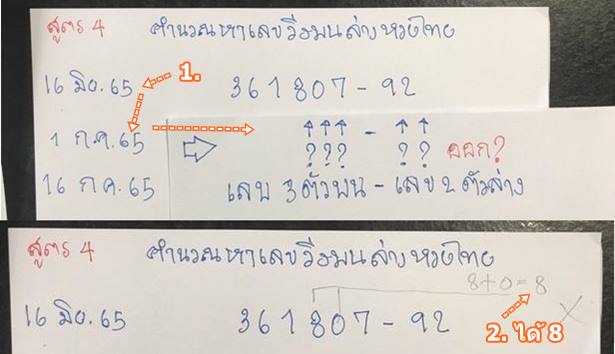 สูตร 4 คำนวณหาเลขวิ่งบนล่างหวยไทย
1.
16 มิย. 65 361807 - 92
1 ก.ค. 65 ↑↑↑ - ↑↑
??? ?? ออก?
16 กค. 65 เลข 3 ตัวบน - เลข 2 ตัวล่าง
สูตร 4 คำนวณหาเลขวิ่งบนล่างหวยไทย
8+0=8
16 มิย. 65 361807 - 92 X
2. ได้ 8